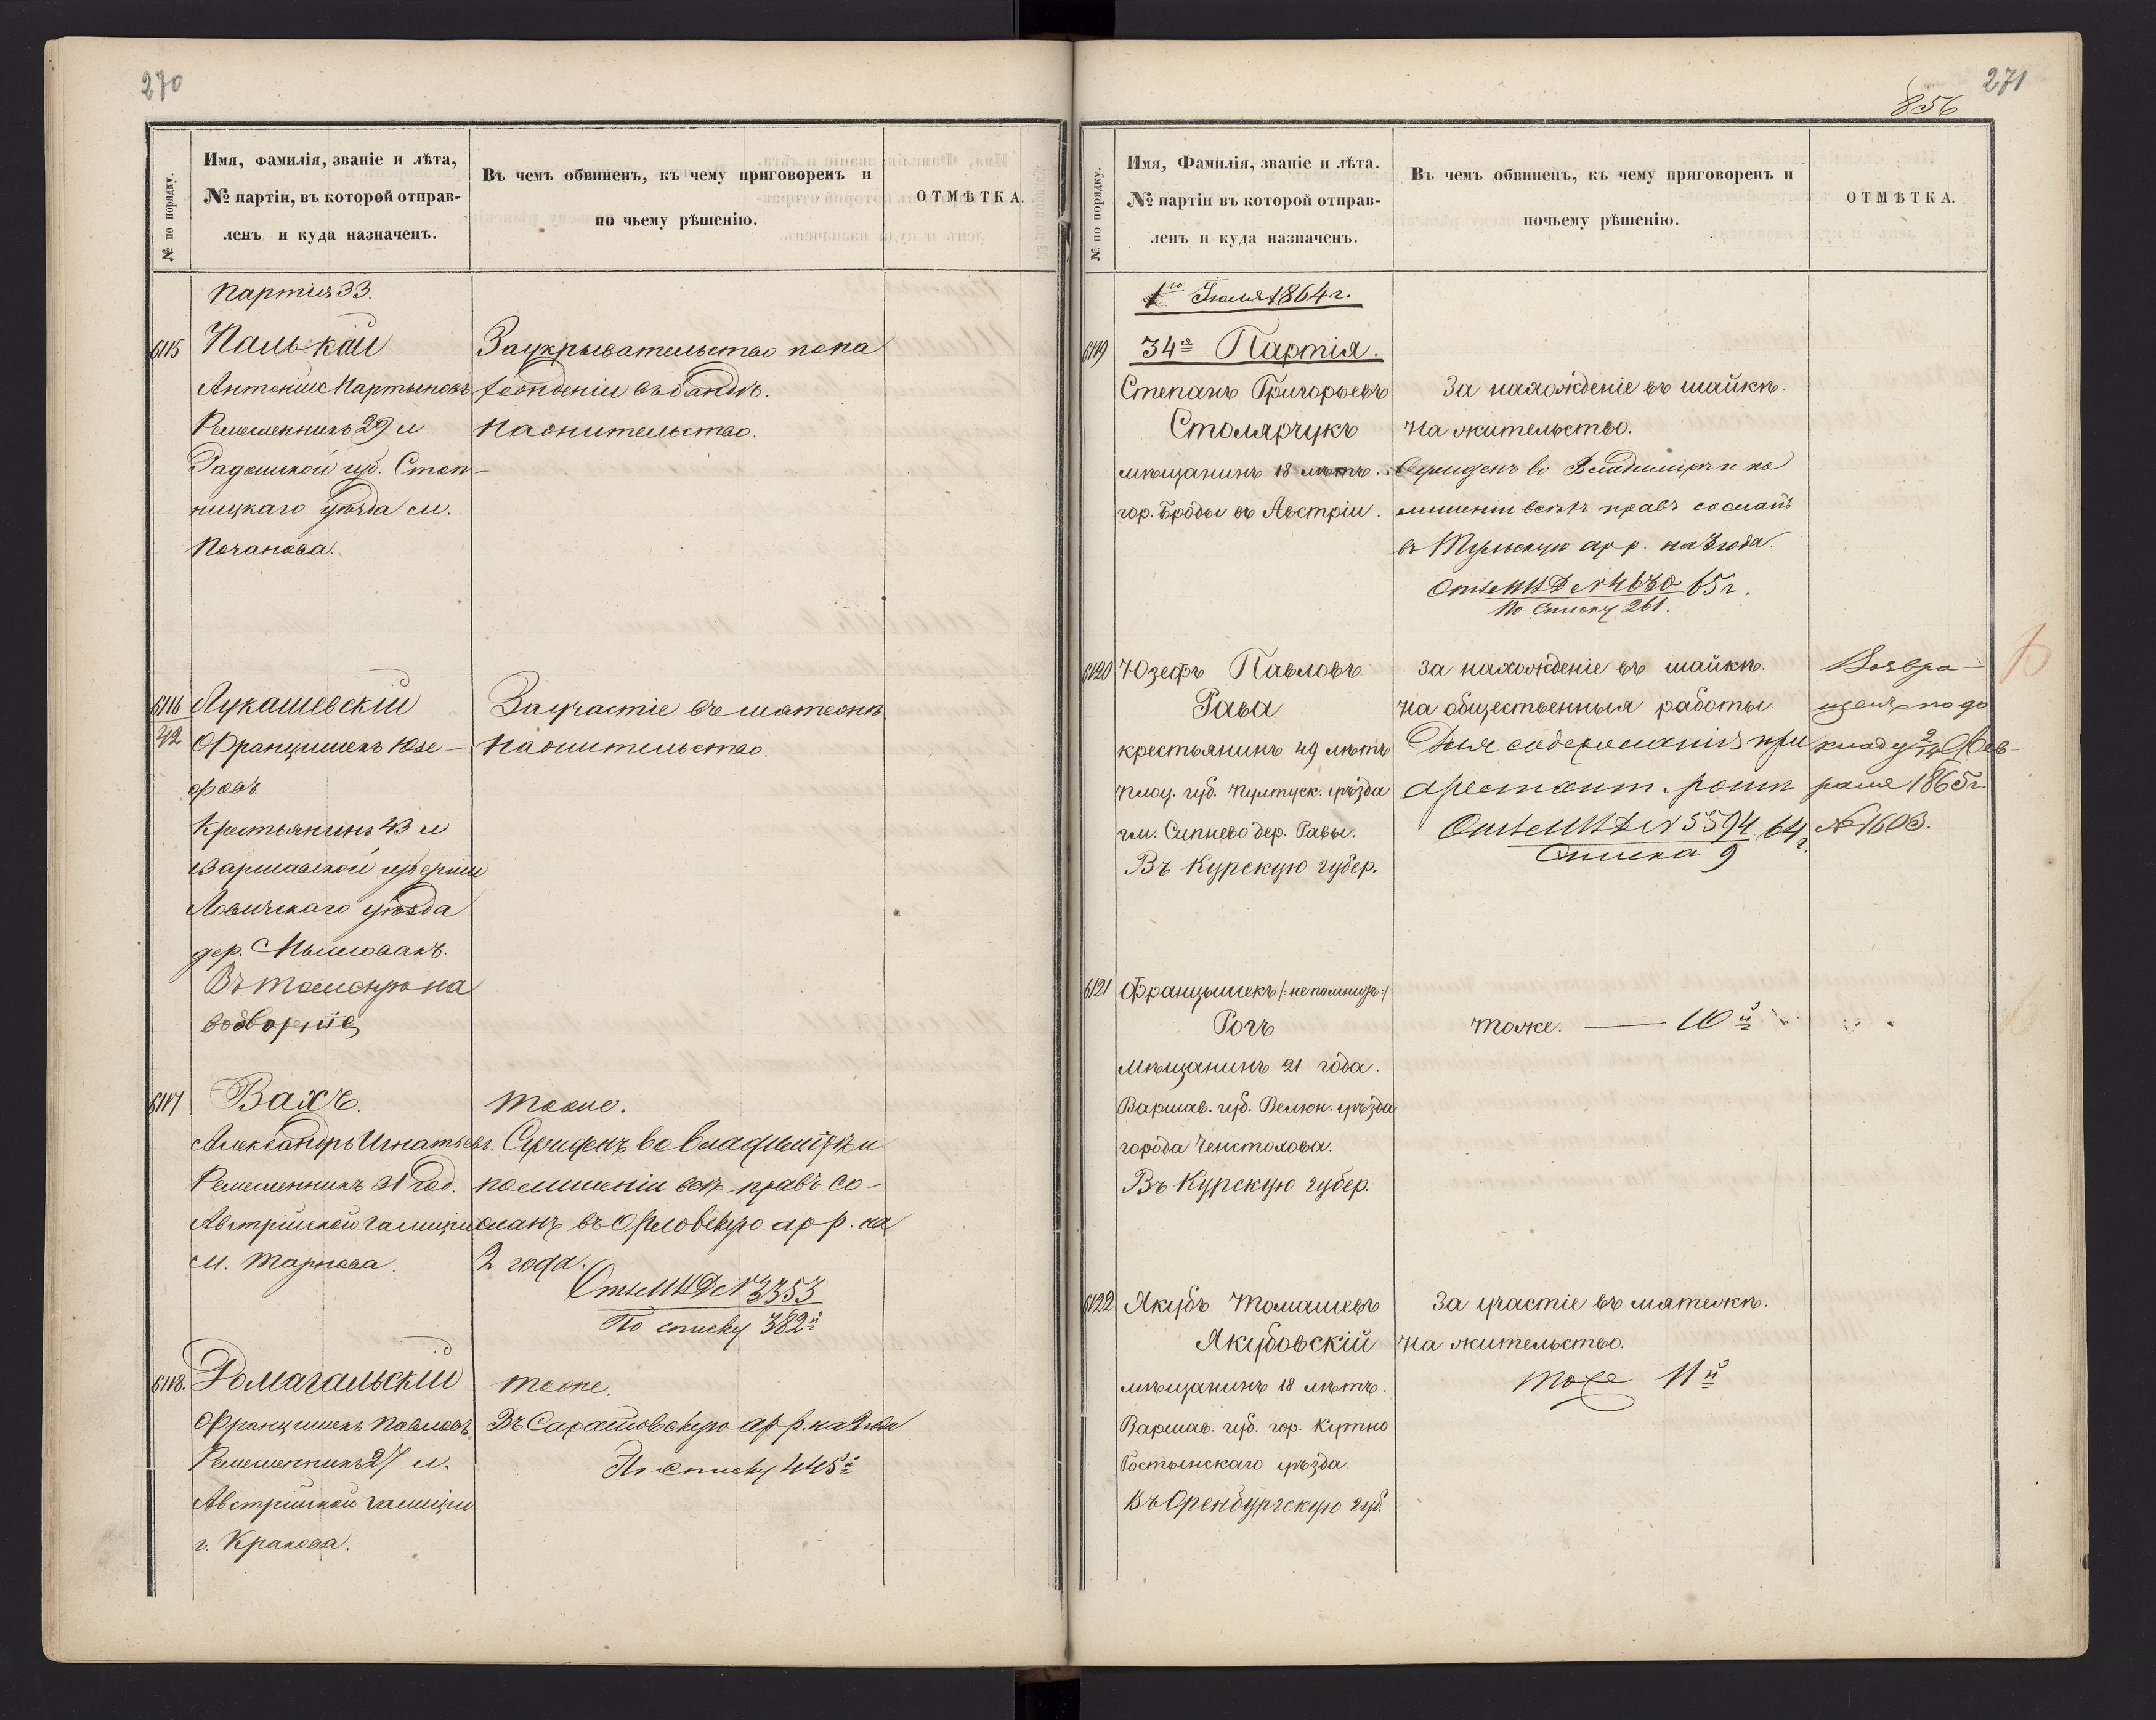 270
№ по порядку.
Имя, фамилія, званіе и лѣта,
№ партіи, въ которой отправ-
ленъ и куда назначенъ.
Въ чемъ обвиненъ, къ чему приговоренъ и
по чьему рѣшенію.
ОТМѢТКА.
Партія 33.
6115
Антоній Мартыновъ
Ремесленникъ 29 л
Радомской губ. Стоп-
ницкаго уѣзда м.
Пачанова.
За укрывательство попа
На жительство.
6116
42
Лукашевскій
Францишекъ Юзе-
фовъ
Крестьянинъ 43 л
Варшавской губерніи
Ловичскаго уѣзда
дер.
Въ Томскую на
водвореніе
За участіе въ мятежѣ.
На жительство.
6117
Вахъ.
Александръ Игнатьевъ.
Ремесленникъ 31 год.
Австрійской Галиціи
м. Тарнова.
Тоже.
Сужденъ во Владимірѣ и
по лишеніи всѣхъ правъ со-
сланъ въ Орловскую ар р. на
2 года.
Отн. МВД № 3353
По списку 382й
6118.
Домагальскій
Францишекъ Павловъ.
Ремесленникъ 27 л.
Австрійской Галиціи
г. Кракова.
Тоже.
Въ Саратовскую ар р. на 2 года
По списку 445й
271
856
№ по порядку.
Имя, Фамилія, званіе и лѣта.
№ партіи въ которой отправ-
ленъ и куда назначенъ.
Въ чемъ обвиненъ, къ чему приговоренъ и
почьему рѣшенію.
ОТМѢТКА.
1го Іюля 1864 г.
6119
34я Партія.
Степанъ Григорьевъ
Столярчукъ
мѣщанинъ 18 лѣтъ.
гор. Броды въ Австріи.
За нахожденіе въ шайкѣ.
На жительство.
Сужденъ во Владимірѣ и по
лишеніи всѣхъ правъ сосланъ
въ Тульскую ар р. на 2 года.
Отн. МВД № 4630 65 г.
По списку 261.
6120
Юзефъ Павловъ
Рава
крестьянинъ 49 лѣтъ
Плоц. губ. Пултуск. уѣзда
гм. Сипнево дер. Равы.
Въ Курскую губер.
За нахожденіе въ шайкѣ.
На общественныя работы
Для содержанія при
арестант. ротѣ
Отн. МВД № 5594 64 г.
Списка 9
Возвра-
щенъ по до
кладу 2/14 Фев-
раля 1865 г.
№ 1603.
6121
Францышекъ /:не помнитъ:/
Рогъ
Мѣщанинъ 21 года.
Варшав. губ. Велюн. уѣзда
города Ченстохова.
Въ Курскую губер.
Тоже. — 10й
6122
Якубъ Томашевъ
Якубовскій
мѣщанинъ 18 лѣтъ.
Варшав. губ. гор. Кутно
Гостынскаго уѣзда.
Въ Оренбургскую губ.
За участіе въ мятежѣ.
На жительство.
Тоже 11й